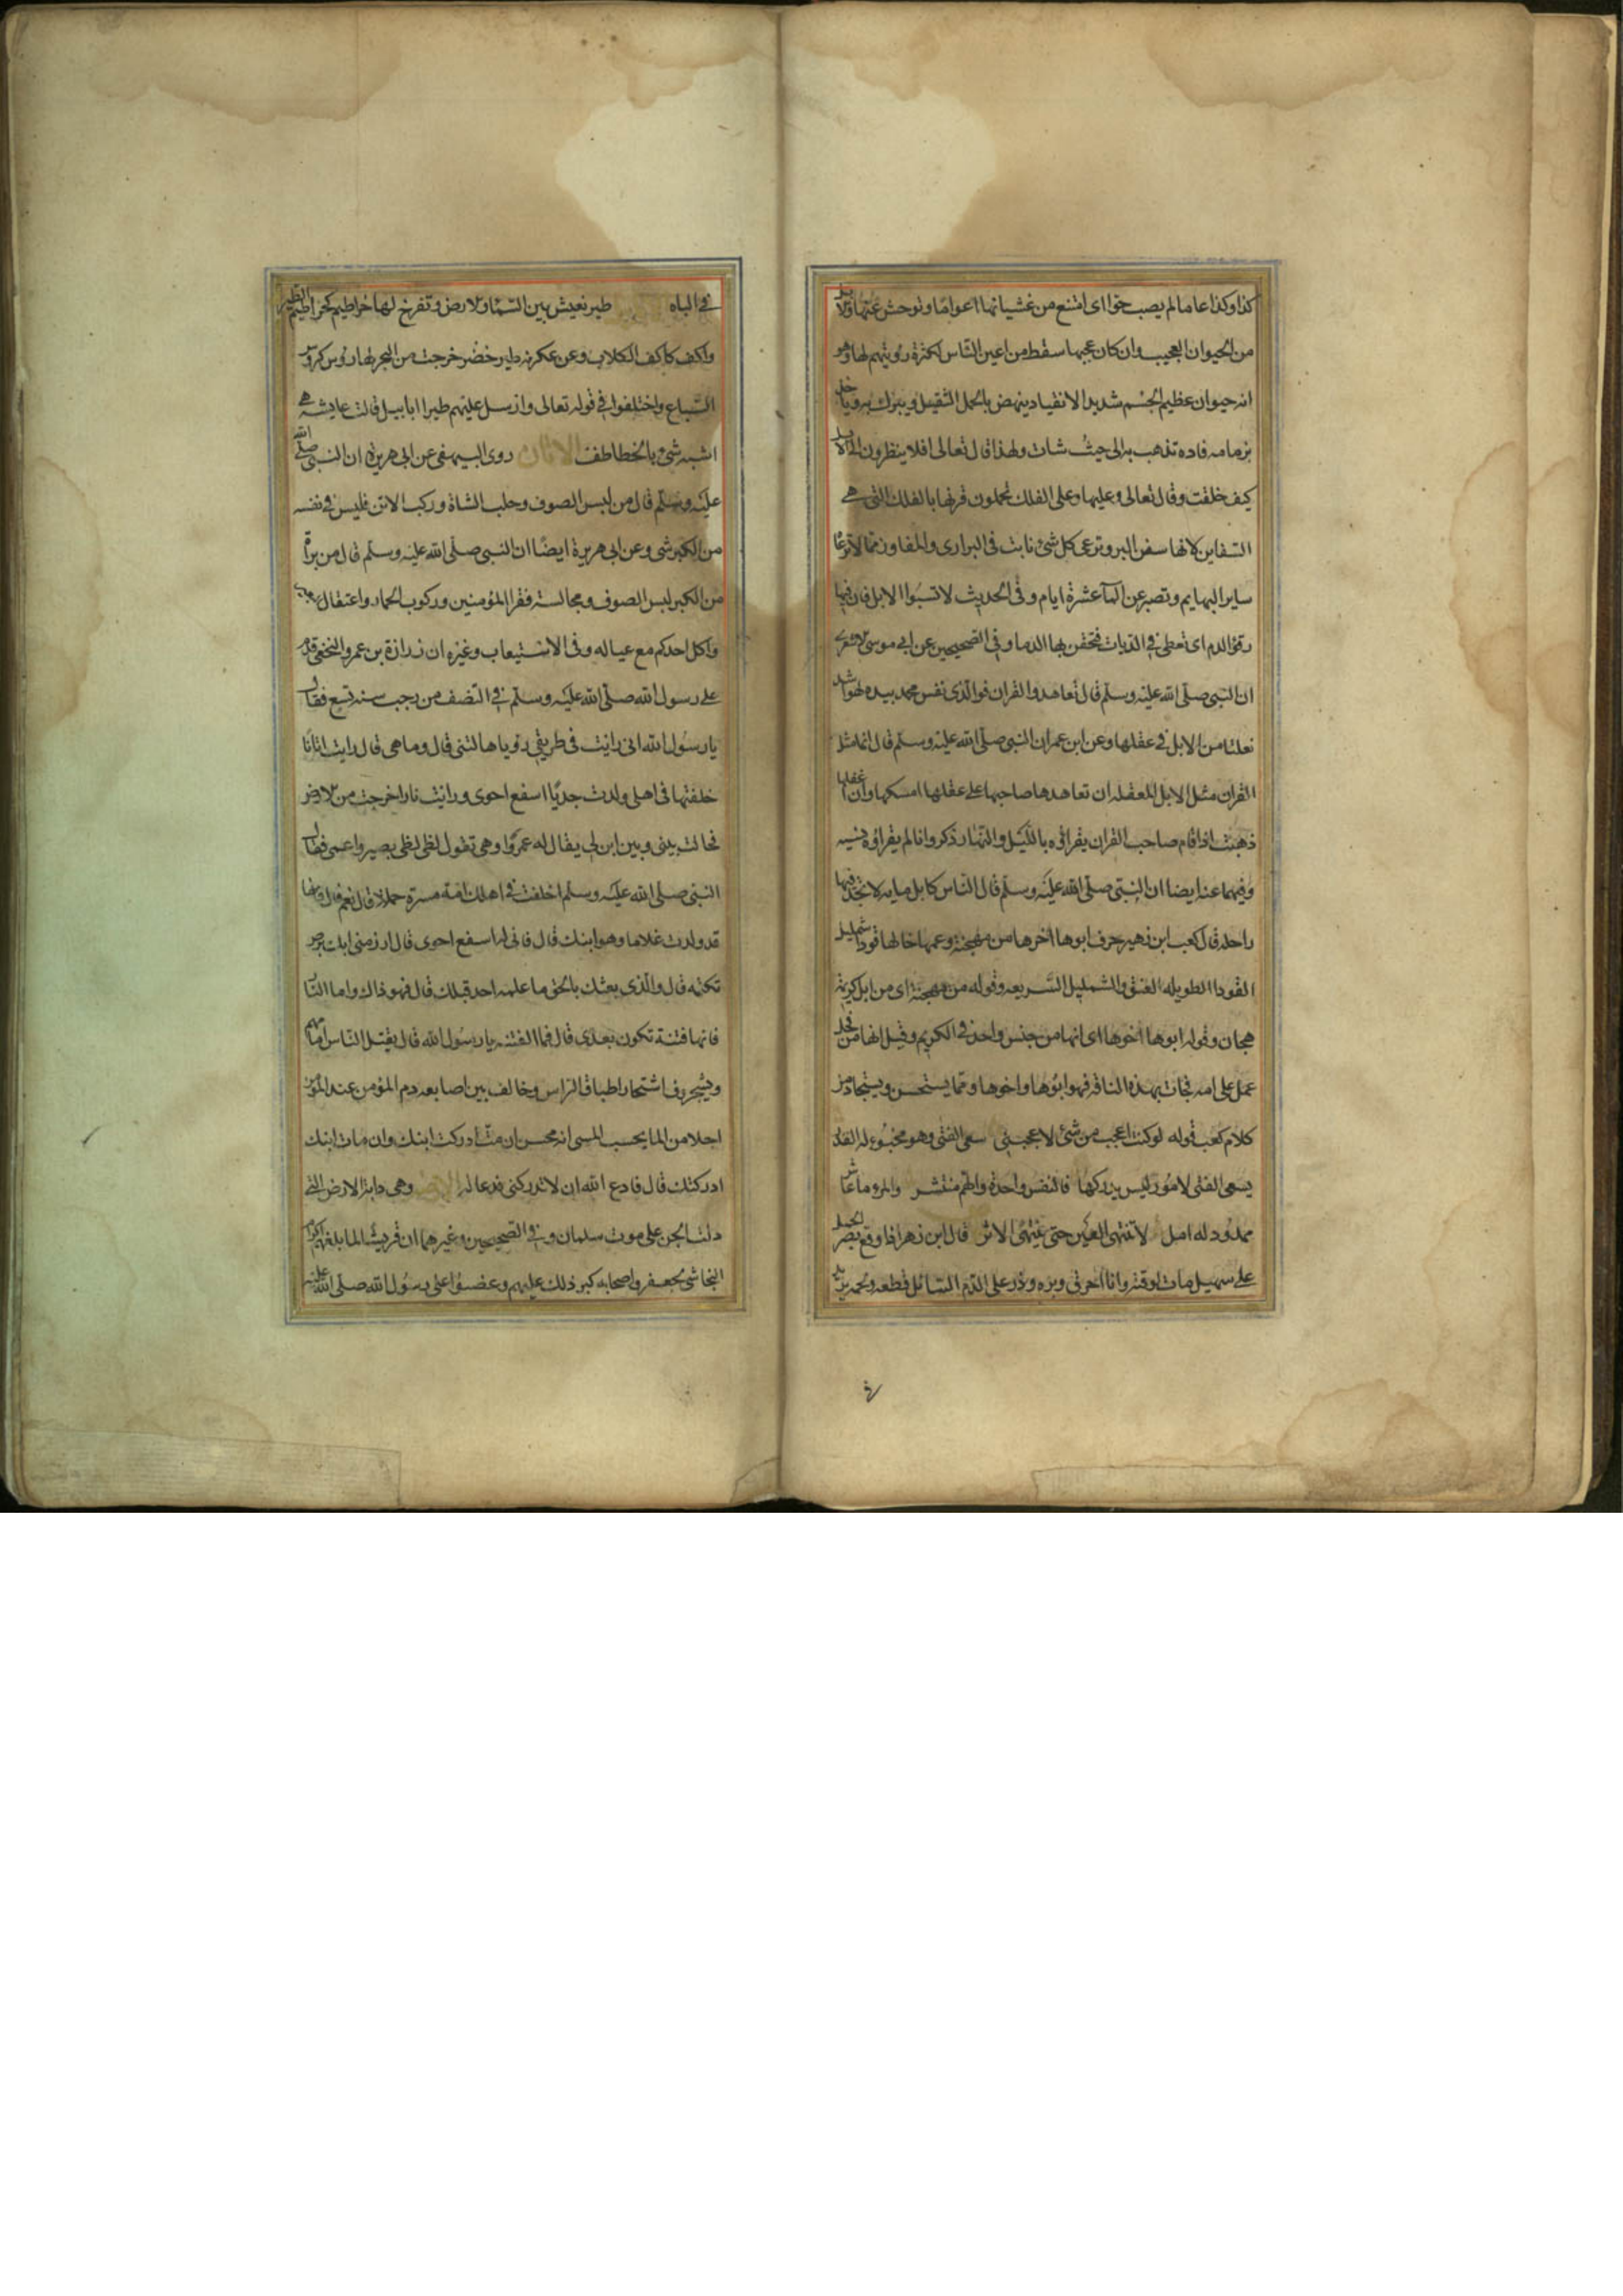 كذا وكذا عاما لم يصب حوا اى امتنع من غشيانها اعواما وتوحش عنها والابل
من الحيوان العجيب وان كان عجبها سقط من اعين الناس لكثرة رويتهم لها وهو
انه حيوان عظيم الجسم شديد الانقياد ينهض بالحمل الثقيل ويبرك به وياخذ
بزمامه فاده تذهب به الى حيث شات ولهذا قال تعالى افلا ينظرون الى الابل
كيف خلقت وقال تعالى وعليها وعلى الفلك تحملون قرنها بالفلك التى هى
السفاين لانها سفن البر وترعى كل شئ نابت فى البرارى والمفاوز مما لا يرعا
ساير البهايم وتصبر عن الما عشرة ايام وفى الحديث لا تسبوا الابل فان فيها
رقؤ الدم اى تعطى فى الديات فتحقن بها الدما وفى الصحيحين عن ابى موسى الاشعرى
ان النبى صلى الله عليه وسلم قال تعاهدوا القران فوالذى نفس محمد بيده لهو اشد
تفلتا من الابل فى عقلها وعن ابن عمر ان النبى صلى الله عليه وسلم قال انما مثل
القران مثل الابل المعقله ان تعاهدها صاحبها على عقلها امسكها وان اغفلها
ذهبت اذا قام صاحب القران يقراؤه بالليل والنهار ذكر واذا لم يقراؤه نسيه
وفيهما عنه ايضا ان النبى صلى الله عليه وسلم قال الناس كابل مايه لا تجد فيها
راحله قال كعب ابن زهير حرف ابوها اخوها من مهجنة وعمها خالها قودا شمليل
القودا الطويله العنق والشمليل السريعه وقوله من مهجنة اى من ابل كريمة
هجان وقوله ابوها اخوها اى انها من جنس واحد فى الكريم وقيل انها من فحل
حمل على امه فجات بهذه الناقه فهو ابوها واخوها ومما يستحسن ويستجاد من
كلام كعب قوله لو كنت اعجب من شئ لاعجبنى سعى الفتى وهو مخبوء له القدر
يسعى الفتى لامور ليس يدركها فالنفس واحدة والهم منتشر والمرو ما عاش
ممدود له امل لا تنتهى العين حتى ينتهى الاثر قال ابن زهر اذا وقع بصر الجمل
على سهيل مات لوقته واذا احرق وبره وذر على الدم السائل قطعه
فى الباه طير تعيش بين السما والارض وتفرخ لها خراطيم كخراطيم الطير
واكف كاكف الكلاب وعن عكرمه طير خضر خرجت من البحر لها روس كروس
السباع واختلفوا فى قوله تعالى وارسل عليهم طيرا ابابيل قالت عايشه هى
اشبه شئ بالخطاطف الاتان روى البيهقى عن ابى هريرة ان النبى صلى الله
عليه وسلم قال من لبس الصوف وحلب الشاة وركب الاتن فليس فى نفسه
من الكبر شى وعن ابى هريرة ايضا ان النبى صلى الله عليه وسلم قال من براة
من الكبر لبس الصوف ومجالسة فقرا المؤمنين وركوب الحمار واعتقال
واكل احدكم مع عياله وفى الاستيعاب وغيره ان زرارة بن عمرو النخعى قدم
على رسول الله صلى الله عليه وسلم فى النصف من رجب سنه تسع فقال
يا رسول الله انى رايت فى طريقى رؤيا هالتنى قال وما هى قال رايت اتانا
خلفتها فى اهلى ولدت جديا اسفع احوى ورايت نارا خرجت من الارض
فحالت بينى وبين ابن لى يقال له عمروا وهى تقول لظى لظى بصير واعمى فقال
النبى صلى الله عليه وسلم اخلفت فى اهلك امة مسرة حملا قال نعم قال فانها
قد ولدت غلاما وهو ابنك قال فانى له اسفع احوى قال ادن منى ابك برص
تكتمه قال والذى بعثك بالحق ما علمه احد قبلك قال فهو ذاك واما النار
فانها فتنة تكون بعدى قال فما الفتنه يا رسول الله قال يقتل الناس امامهم
ويشجرون اشتجار اطباق الراس وخالف بين اصابعه دم المؤمن عند المؤمن
احلا من الما يحسب المسى انه محسن ان مت ادركت ابنك وان مات ابنك
ادركتك قال فادع الله ان لا تدركنى فدعا له الارضه وهى دابة الارض التى
دلت الجن على موت سلمان وفى الصحيحين وغيرهما ان قريشا لما بلغهم اكرام
النجاشى لجعفر واصحابه كبر ذلك عليهم وغضبوا على رسول الله صلى الله عليه